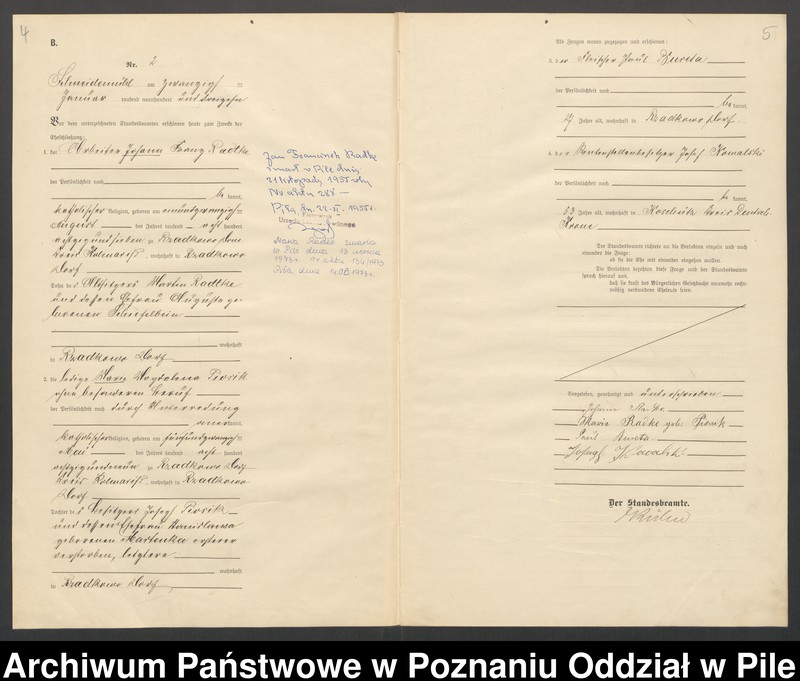 4
B.
Nr. 2
Schneidemühl am zwanzigsten
Januar tausend neunhundert und dreizehn
Vor dem unterzeichneten Standesbeamten erschienen heute zum Zwecke der
Eheschließung:
1. der Arbeiter Johann Franz Radtke
der Persönlichkeit nach
be kannt,
katholischer Religion, geboren am einundzwanzigsten
August des Jahres tausend acht hundert
zu Rzadkowo Dorf
Kreis Kolmar i/P., wohnhaft in Rzadkowo
Dorf
Sohn des Altsitzers Martin Radtke
und dessen Ehefrau Auguste ge-
borenen Schiefelbein
wohnhaft
in Rzadkowo Dorf
2. die ledige Marie Magdalena Piosik
ohne besonderen Beruf
der Persönlichkeit nach durch Unterredung
kannt,
katholischer Religion, geboren am fünfundzwanzigsten
Mai des Jahres tausend acht hundert
neunundachtzig zu Rzadkowo Dorf
Kreis Kolmar i/P., wohnhaft in Rzadkowo
Dorf
Tochter des Besitzers Josef Piosik
und dessen Ehefrau
geborenen Martenka ersterer
verstorben, letztere
wohnhaft
in Rzadkowo Dorf
Jan Franciszek Radke
zmarł w Pile dnia
21 listopada 1955 roku
Nr aktu 288
Piła, dn. 22.XI.1955 r.
Maria Radke zmarła
w Pile dnia 13 czerwca
1973 r. Nr aktu 134/1973
Piła, dnia
5
Als Zeugen waren zugezogen und erschienen:
3. der Fleischer Paul
der Persönlichkeit nach
be kannt,
27 Jahre alt, wohnhaft in Rzadkowo Dorf
4. der Rentenstellenbesitzer Josef Kowalski
der Persönlichkeit nach
be kannt,
53 Jahre alt, wohnhaft in Koschütz Kreis Deutsch-
Krone
Der Standesbeamte richtete an die Verlobten einzeln und nach
einander die Frage:
ob sie die Ehe mit einander eingehen wollen.
Die Verlobten bejahten diese Frage und der Standesbeamte
sprach hierauf aus,
daß sie kraft des Bürgerlichen Gesetzbuchs nunmehr recht-
mäßig verbundene Eheleute seien.
Vorgelesen, genehmigt und unterschrieben
Johann Radke
Maria Radke geb. Piosik
Paul
Josef Kowalski
Der Standesbeamte.
Archiwum Państwowe w Poznaniu Oddział w Pile